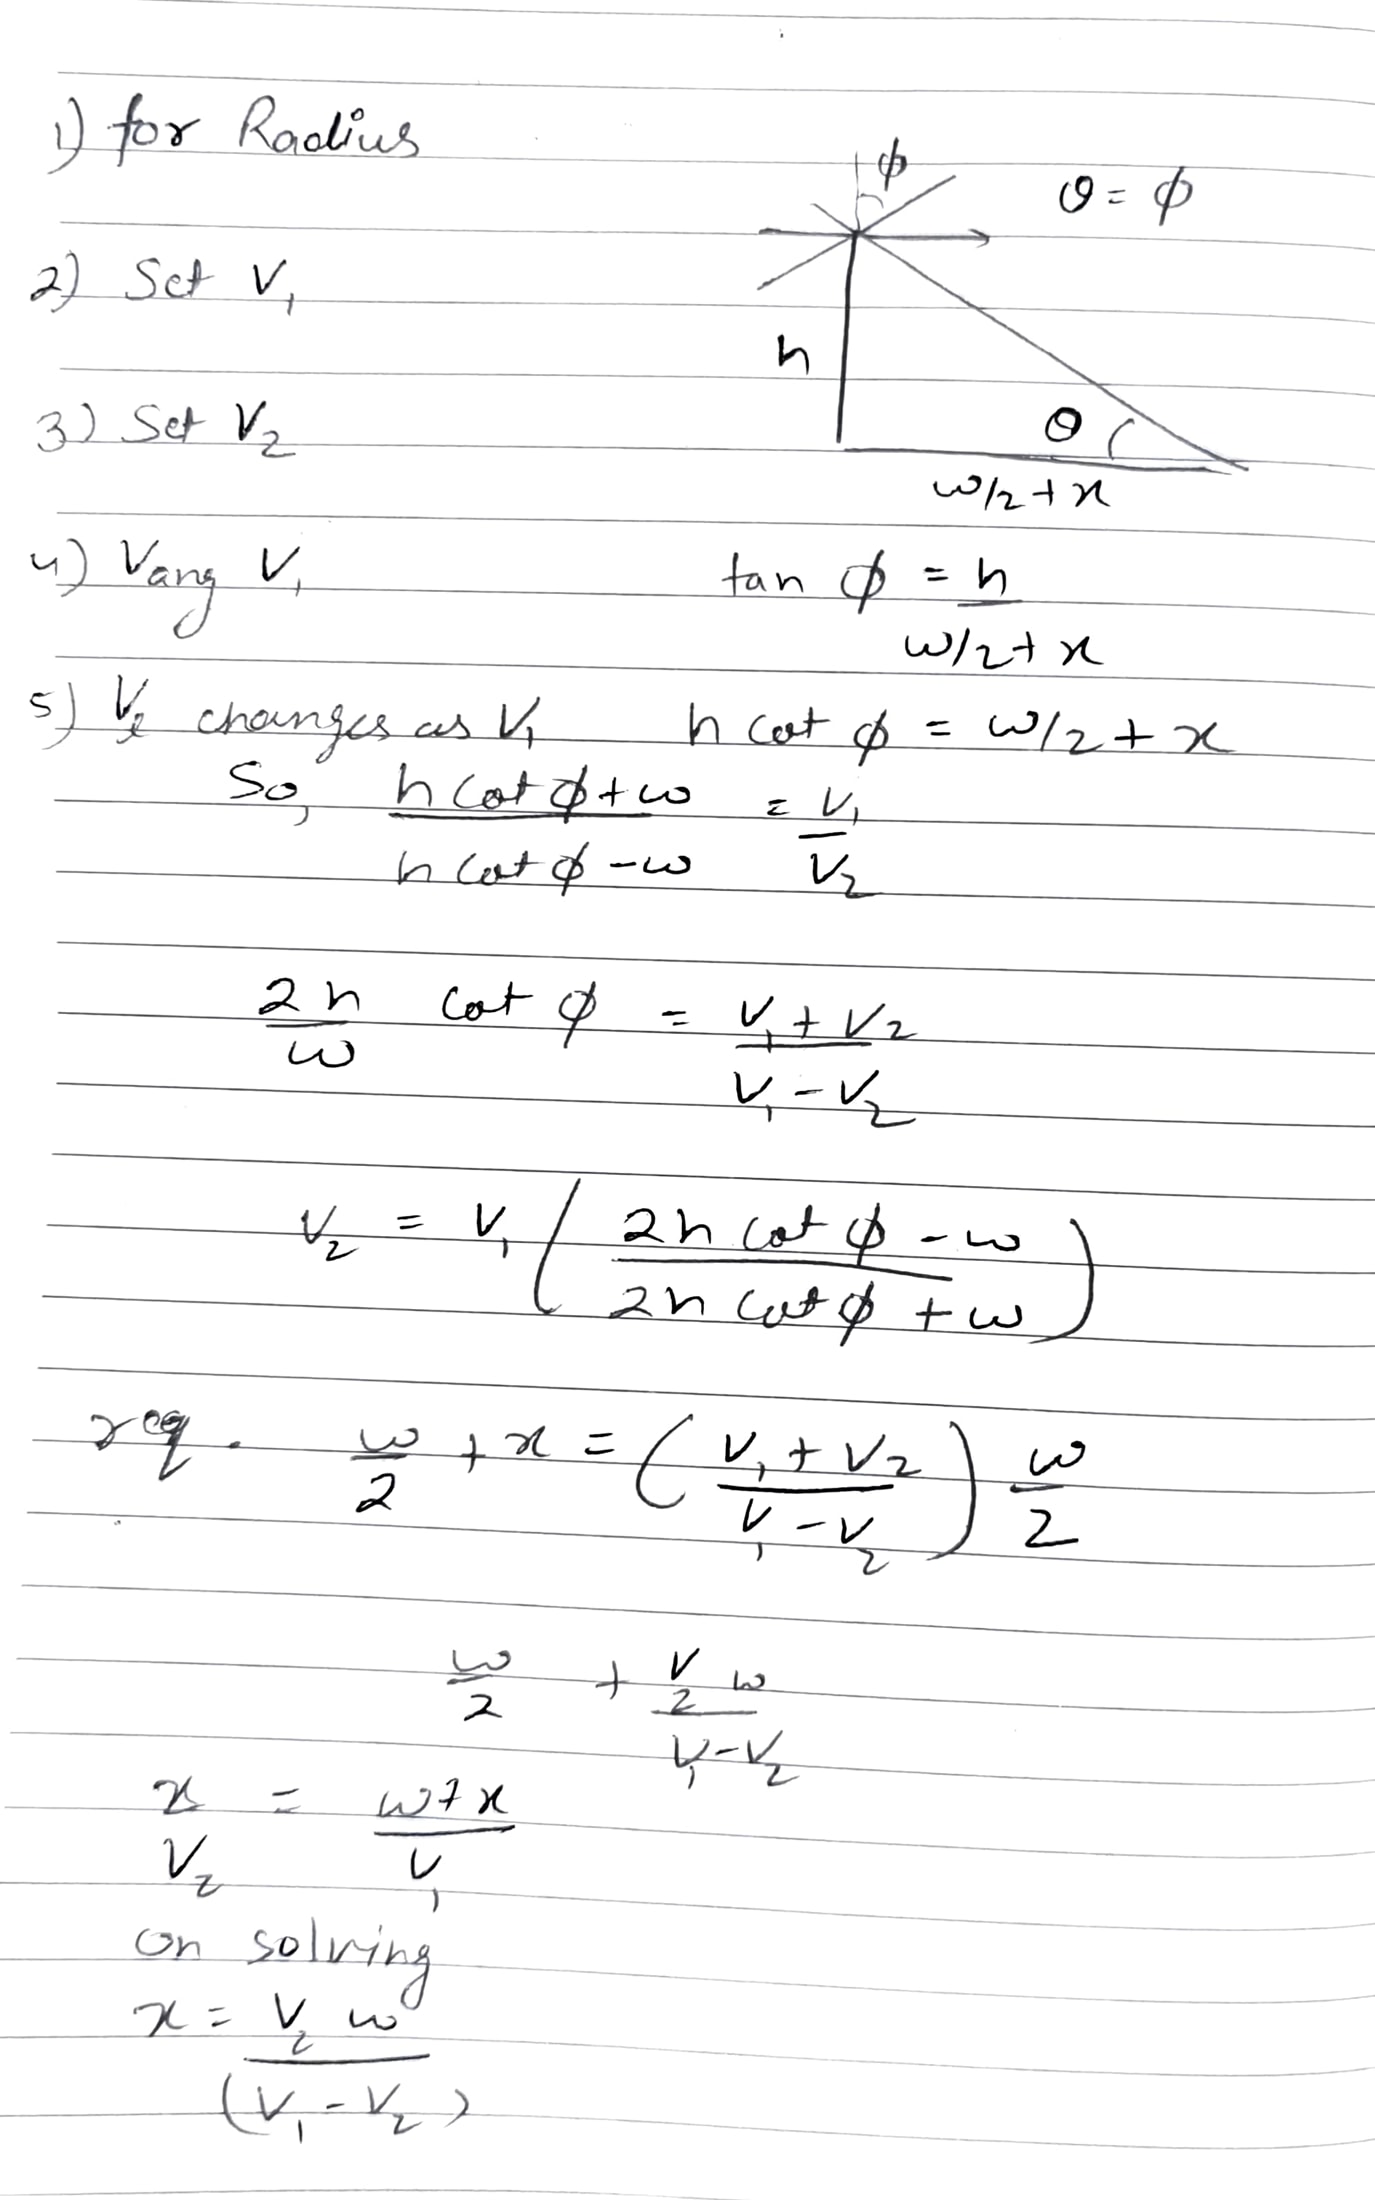 1) for Radius
φ
θ = φ
2) Set V₁
h
3) Set V₂
θ
w/2 + x
4) Vang V₁
tan φ = h / (w/2 + x)
5) V₂ changes as V₁
h cot φ = w/2 + x
So, (h cot φ + w) / (h cot φ - w) = V₁ / V₂
2h/w cot φ = (V₁ + V₂) / (V₁ - V₂)
V₂ = V₁ ( (2h cot φ - w) / (2h cot φ + w) )
req. w/2 + x = ( (V₁ + V₂) / (V₁ - V₂) ) w/2
w/2 + V₂ w / (V₁ - V₂)
x / V₂ = (w + x) / V₁
on solving
x = V₂ w / (V₁ - V₂)